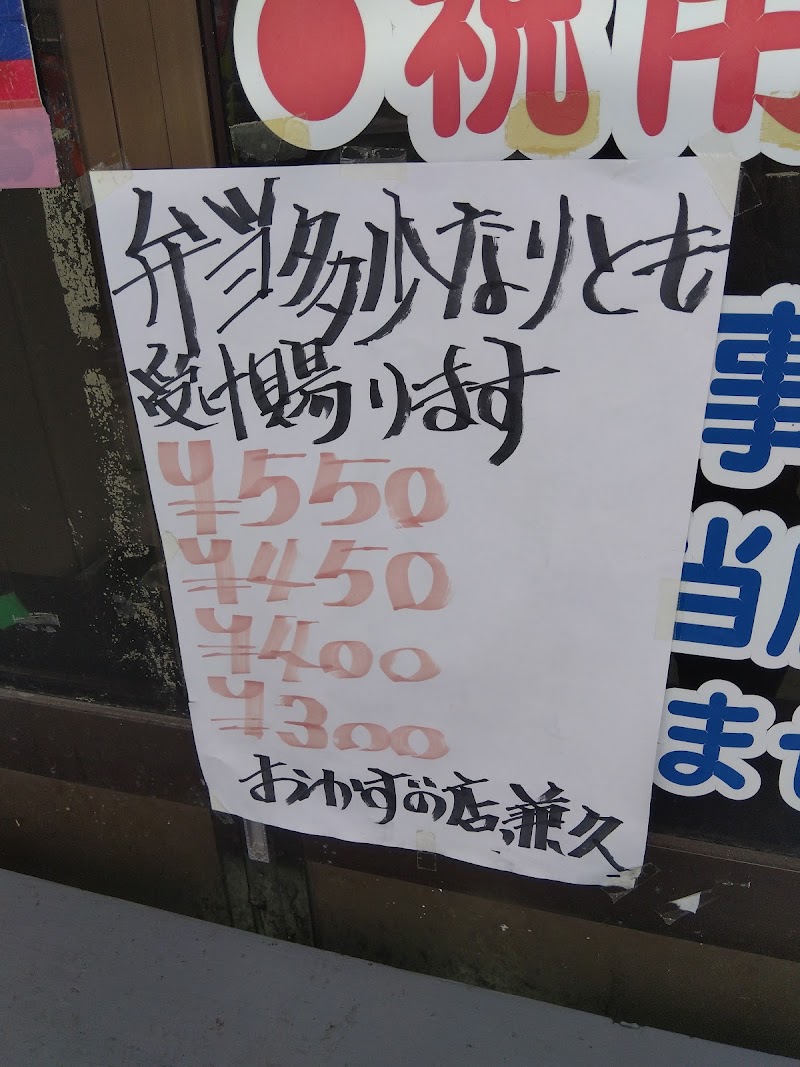 ●祝用
弁当多少なりとも
受け賜ります
¥550
¥450
¥400
¥300
おかずの店兼久
事
当
ませ